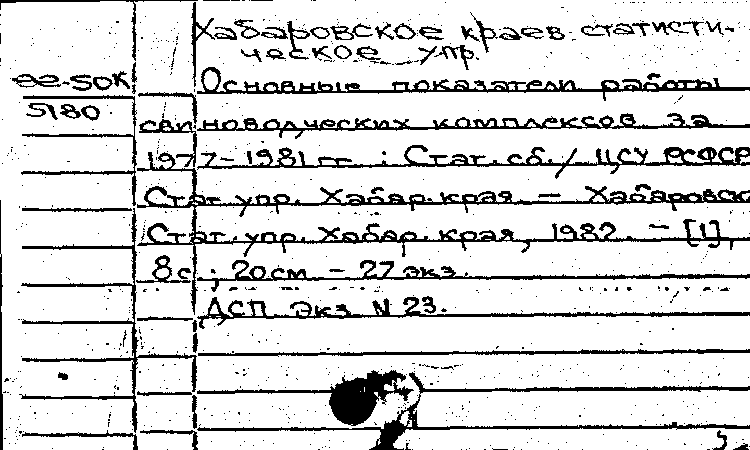 Хабаровское краев. статисти-
ческое упр.
ее-50к
5180
Основные показатели работы
свиноводческих комплексов за
1977-1981 гг. : Стат. сб. / ЦСУ РСФСР
Стат. упр. Хабар. края. - Хабаровск
Стат. упр. Хабар. края, 1982. - [1],
8 с.; 20 см - 27 экз.
ДСП Экз N 23.